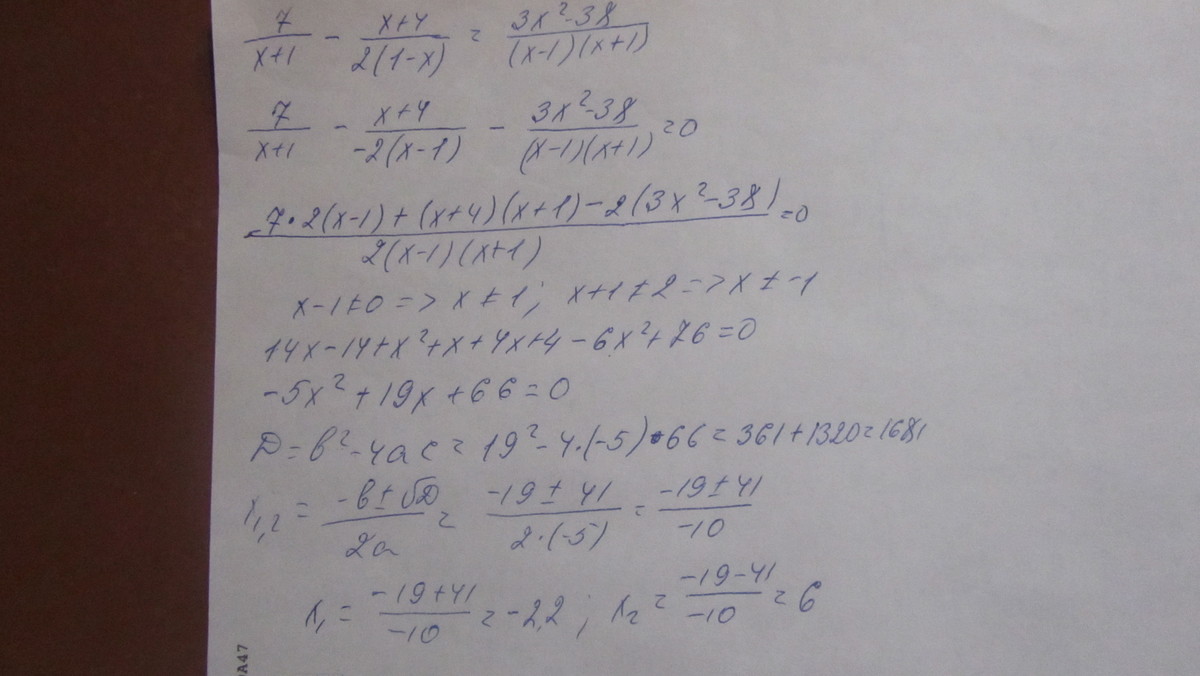 7/(x+1) - (x+4)/(2(1-x)) = (3x²-38)/((x-1)(x+1))
7/(x+1) - (x+4)/(-2(x-1)) - (3x²-38)/((x-1)(x+1)) = 0
(7·2(x-1)+(x+4)(x+1)-2(3x²-38))/(2(x-1)(x+1)) = 0
x-1≠0 => x≠1; x+1≠2 => x≠-1
14x-14+x²+x+4x+4-6x²+76=0
-5x²+19x+66=0
D=b²-4ac=19²-4·(-5)·66=361+1320=1681
x₁,₂ = (-b±√D)/(2a) = (-19±41)/(2·(-5)) = (-19±41)/(-10)
x₁ = (-19+41)/(-10) = -2,2; x₂ = (-19-41)/(-10) = 6
A47